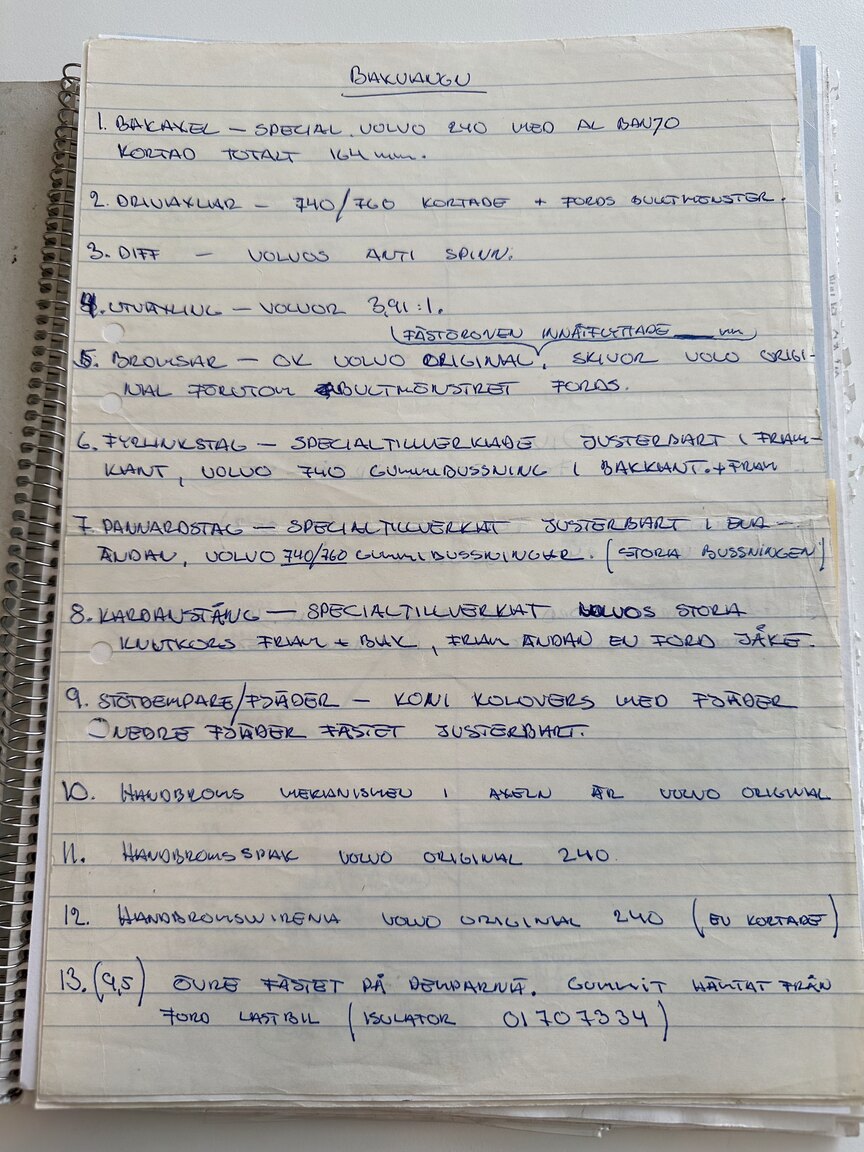 BAKVAGN
1. BAKAXEL – SPECIAL. VOLVO 240 MED AL BANJO
KORTAD TOTALT 164 mm.
2. DRIVAXLAR – 740/760 KORTADE + FORDS BULTMÖNSTER.
3. DIFF – VOLVOS ANTI SPINN.
4. UTVÄXLING – VOLVOR 3,91:1.
(FÄSTÖRONEN INNÅTFLYTTADE ___ mm)
5. BROMSAR – OK VOLVO ORIGINAL, SKIVOR VOLO ORIGI-
NAL FÖRUTOM BULTMÖNSTRET FORDS.
6. FYRLINKSTAG – SPECIALTILLVERKADE JUSTERBART I FRAM-
KANT, VOLVO 740 GUMMIBUSSNING I BAKKANT. + FRAM
7. PANNARDSTAG – SPECIALTILLVERKAT JUSTERBART I ENA –
ÄNDAN, VOLVO 740/760 GUMMIBUSSNINGAR. (STORA BUSSNINGEN)
8. KARDANSTÅNG – SPECIALTILLVERKAT VOLVOS STORA
KNUTKORS FRAM + BAK, FRAM ÄNDAN EN FORD JÅKE.
9. STÖTDEMPARE/FJÄDER – KONI KOLOVERS MED FJÄDER
NEDRE FJÄDER FÄSTET JUSTERBART.
10. HANDBROMS MEKANISMEN I AXELN ÄR VOLVO ORIGINAL
11. HANDBROMSSPAK VOLVO ORIGINAL 240.
12. HANDBROMSWIRENA VOLVO ORIGINAL 240 (EN KORTARE)
13. (9,5) ÖVRE FÄSTET PÅ DEMPARNA. GUMMIT HÄMTAT FRÅN
FORD LASTBIL (ISOLATOR 01707334)